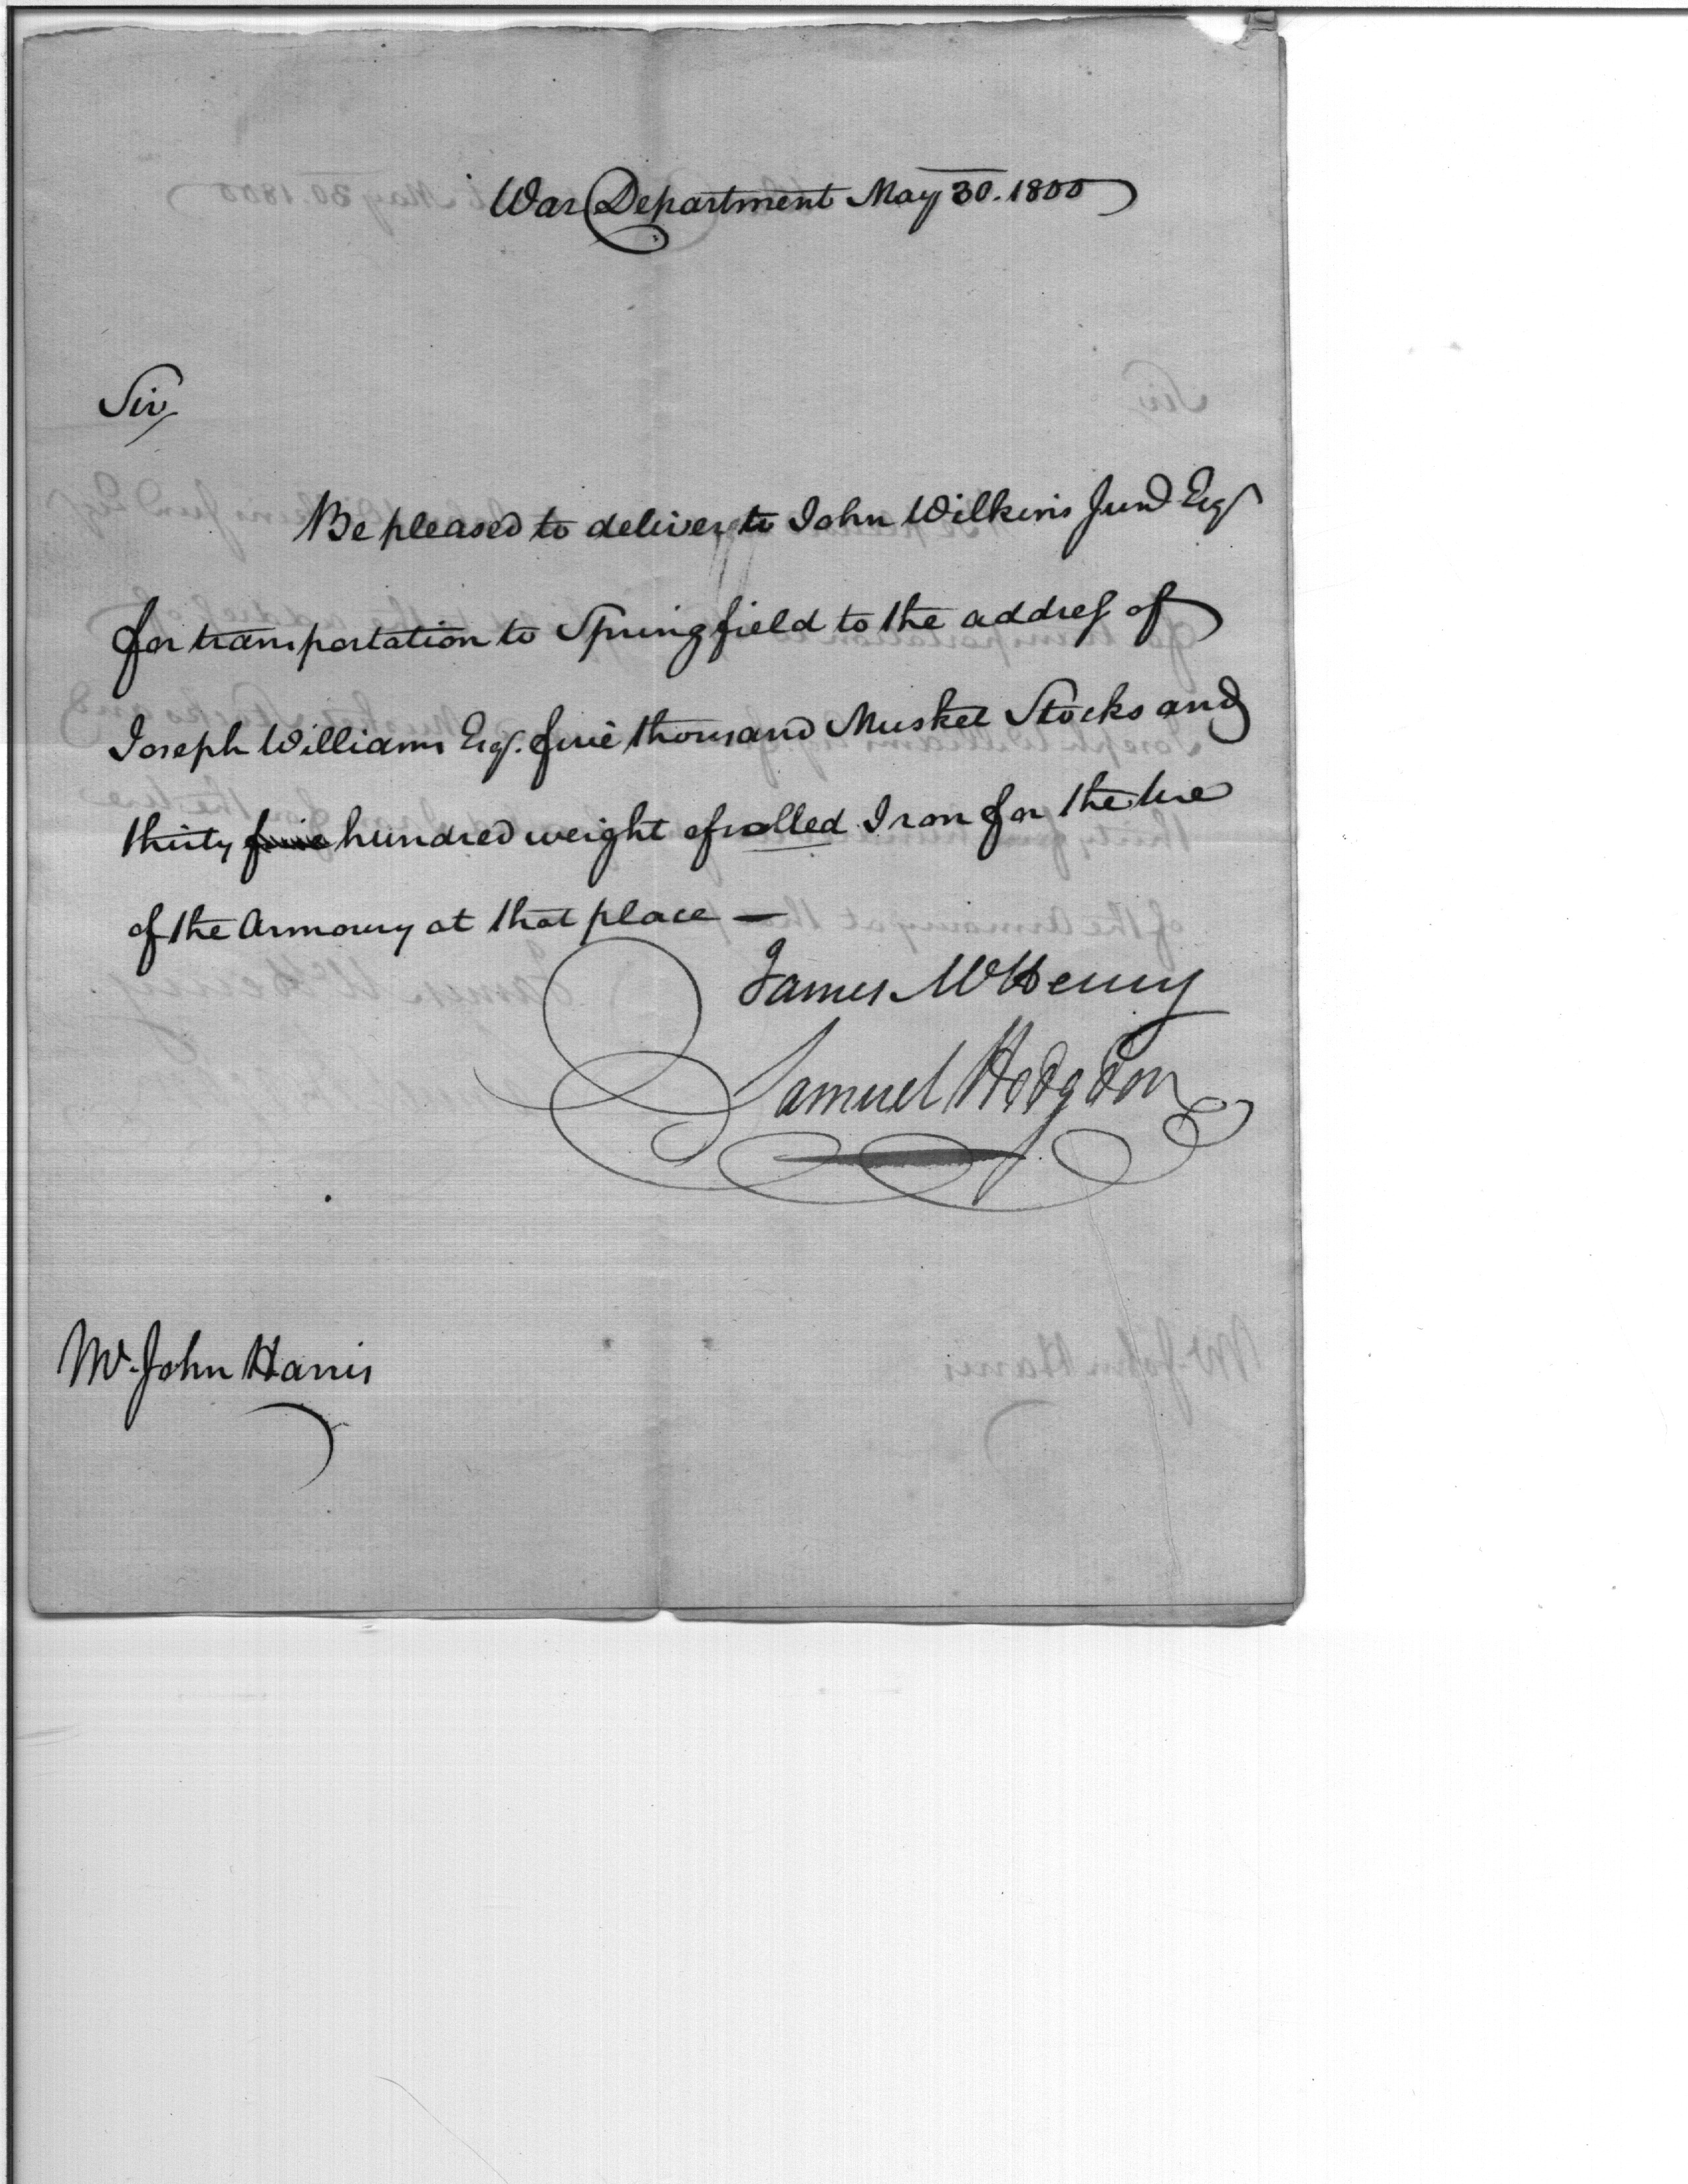 War Department May 30. 1800
Sir,
Be pleased to deliver to John Wilkins Junr Esqr
for transportation to Springfield to the address of
Joseph Williams Esqr. five thousand Musket Stocks and
thirty five hundred weight of rolled Iron for the use
of the Armoury at that place —
James McHenry
Samuel Hodgdon
Mr. John Harris